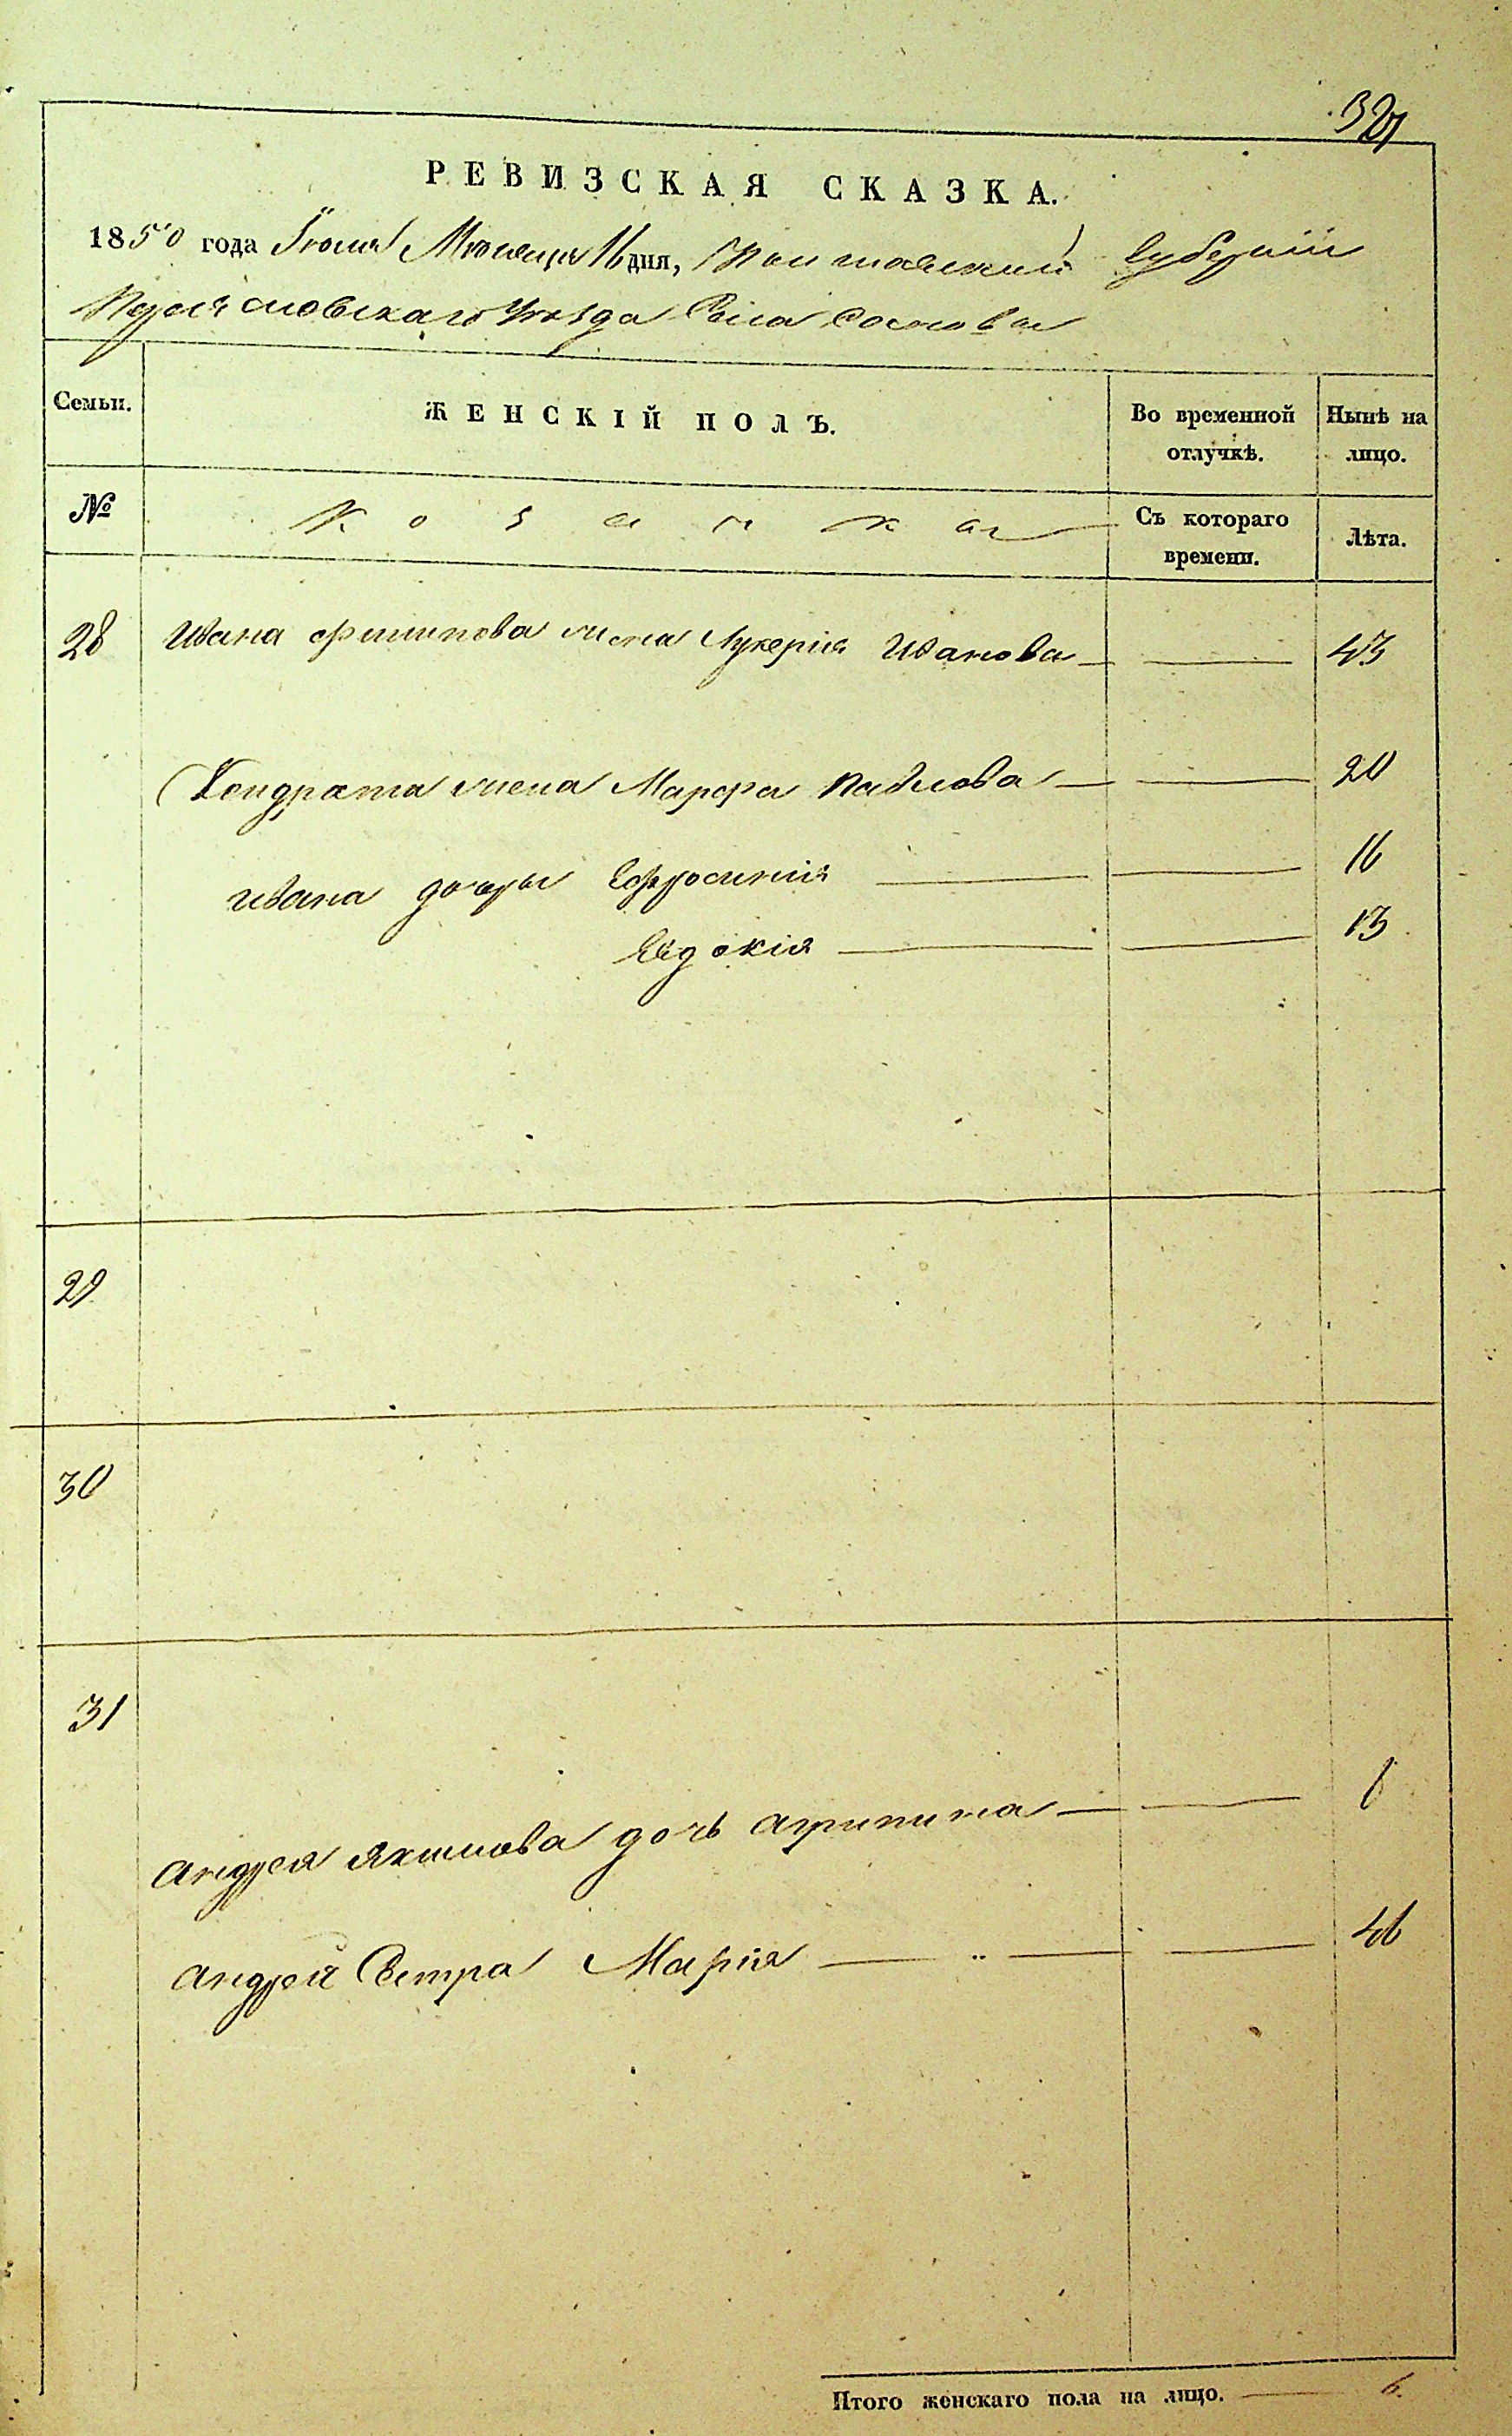 РЕВИЗСКАЯ СКАЗКА.
1850 года Іюля Мѣсяца 16 дня, Полтавской Губерніи
Переяславскаго Уѣзда Села Сосновы
Семьи. ЖЕНСКІЙ ПОЛЪ. Во временной отлучкѣ. Нынѣ на лицо.
№ Козачки Съ котораго времени. Лѣта.
28 Ивана Филипова жена Лукерія Иванова — — 43
Кондрата жена Марфа Павлова — — 20
Ивана дочери Ефросинія — — 16
Евдокія — — 13
29
30
31
Андрея Якимова дочь Агрипина — —
Андрея Сестра Марія — — 46
Итого женскаго пола на лицо. — 6.